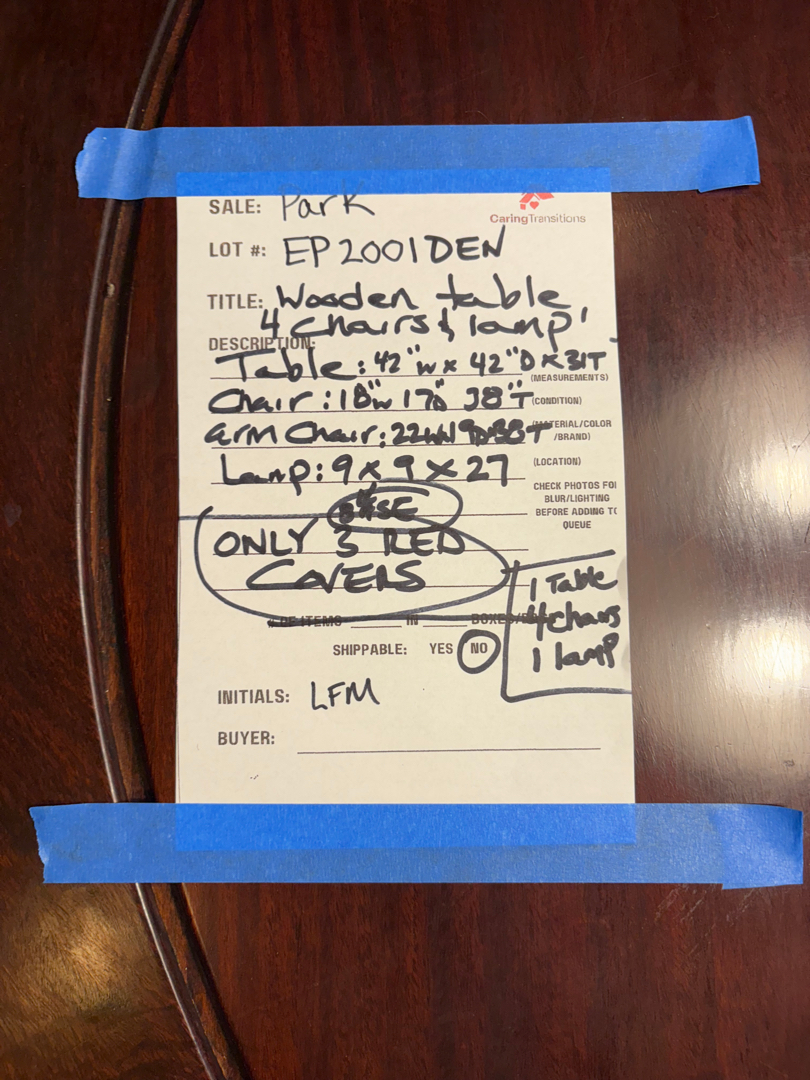 SALE: Park
CaringTransitions
LOT #: EP2001DEN
TITLE: Wooden table
4 Chairs & lamp
DESCRIPTION:
Table: 42"W x 42"D x 31T
(MEASUREMENTS)
Chair: 18"W 17D 38"T
(CONDITION)
arm Chair: 22W 19D 38T
(MATERIAL/COLOR
/BRAND)
Lamp: 9 x 9 x 27
(LOCATION)
BASE
CHECK PHOTOS FO
BLUR/LIGHTING
BEFORE ADDING TO
QUEUE
ONLY 3 RED
COVERS
1 Table
4 chairs
1 lamp
# OF ITEMS IN BOXES/
SHIPPABLE: YES NO
INITIALS: LFM
BUYER: